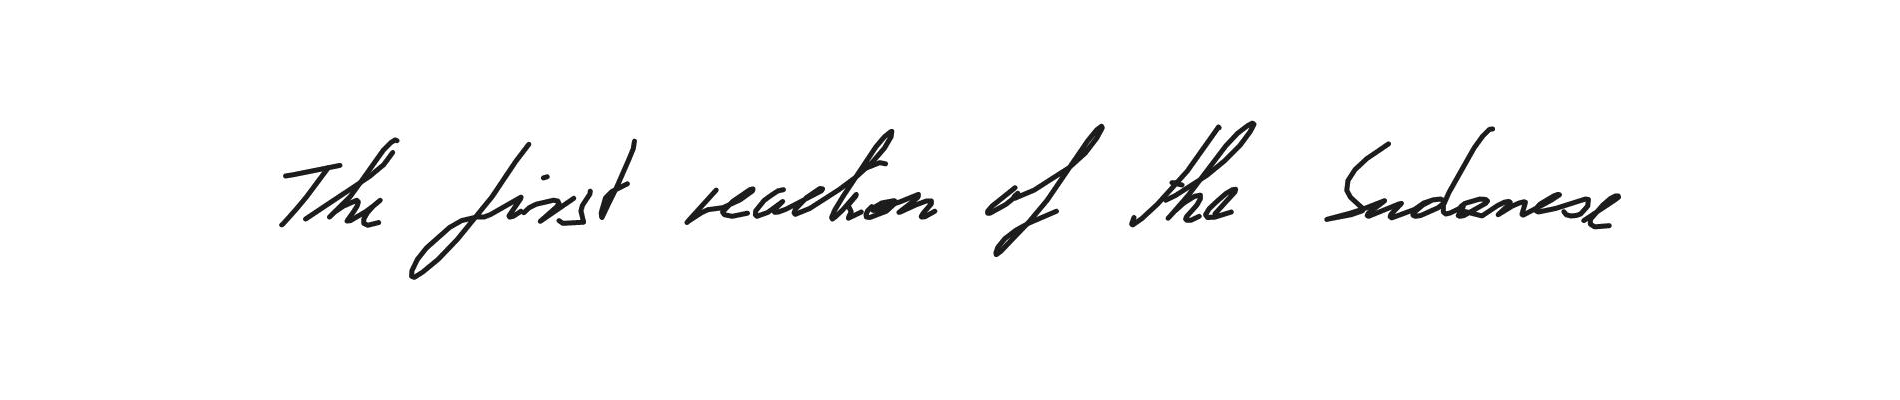 The first reaction of the Sudanese